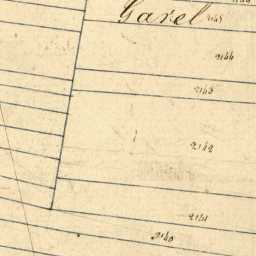 Garel
2165
2164
2163
2162
2161
2160